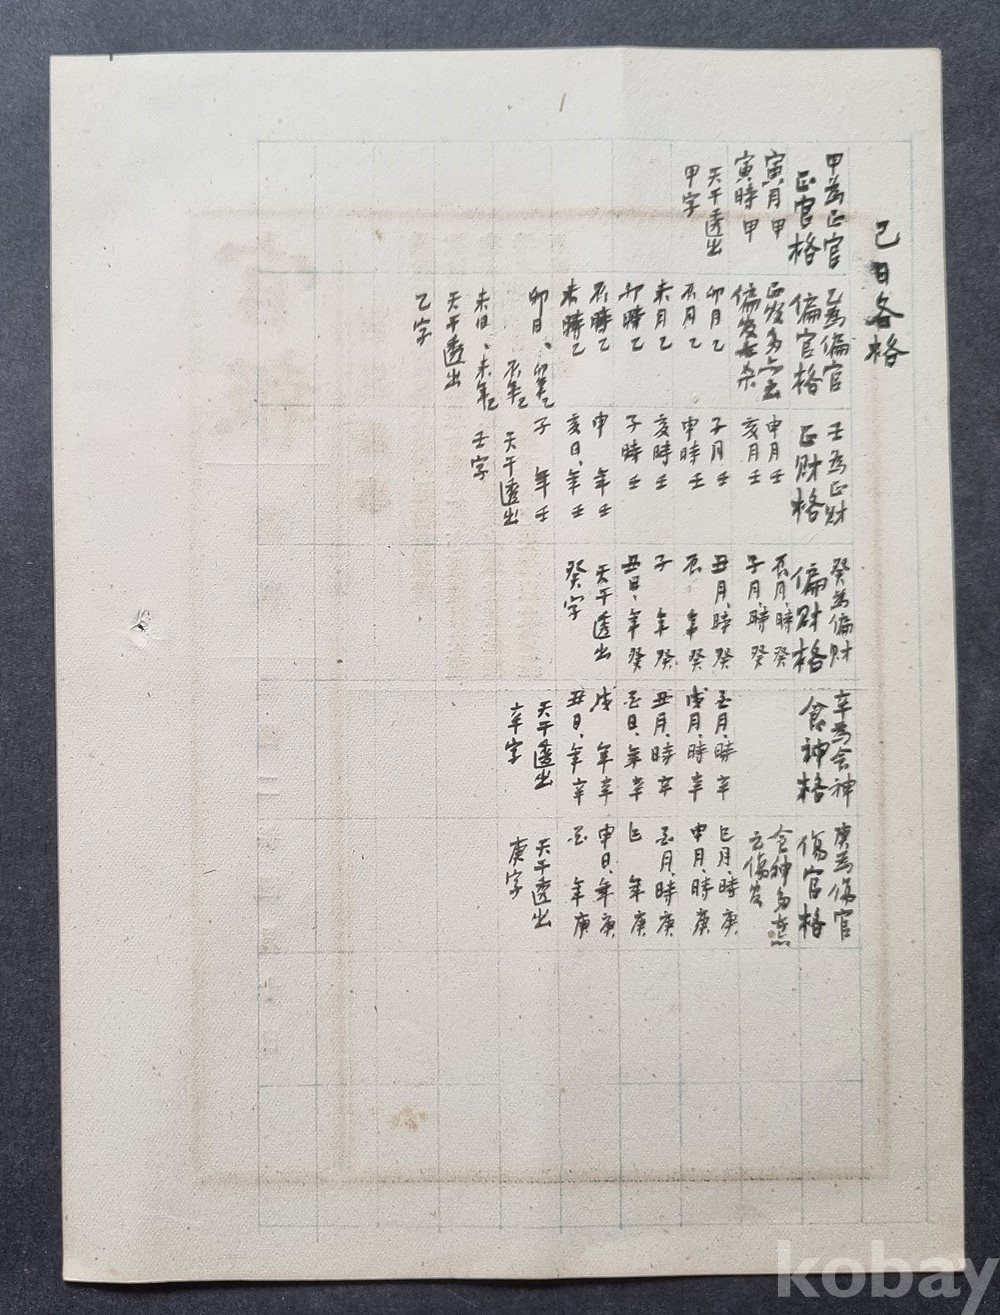 己日各格
甲為正官
正官格
寅月甲
寅時甲
天干透出
甲字
乙為偏官
偏官格
正官多
偏官
卯月乙
辰月乙
未月乙
卯時乙
辰時乙
未時乙
卯日、卯年乙
辰年乙
未日、未年乙
天干透出
乙字
壬為正財
正財格
申月壬
亥月壬
子月壬
申時壬
亥時壬
子時壬
申 年壬
亥日、年壬
子 年壬
天干透出
壬字
癸為偏財
偏財格
辰月、時癸
子月、時癸
丑月、時癸
辰 年癸
子 年癸
丑日、年癸
天干透出
癸字
辛為食神
食神格
酉月、時辛
戌月、時辛
丑月、時辛
酉日、年辛
戌 年辛
丑日、年辛
天干透出
辛字
庚為傷官
傷官格
食神多
巳月、時庚
申月、時庚
酉月、時庚
巳 年庚
申日、年庚
酉 年庚
天干透出
庚字
kobay